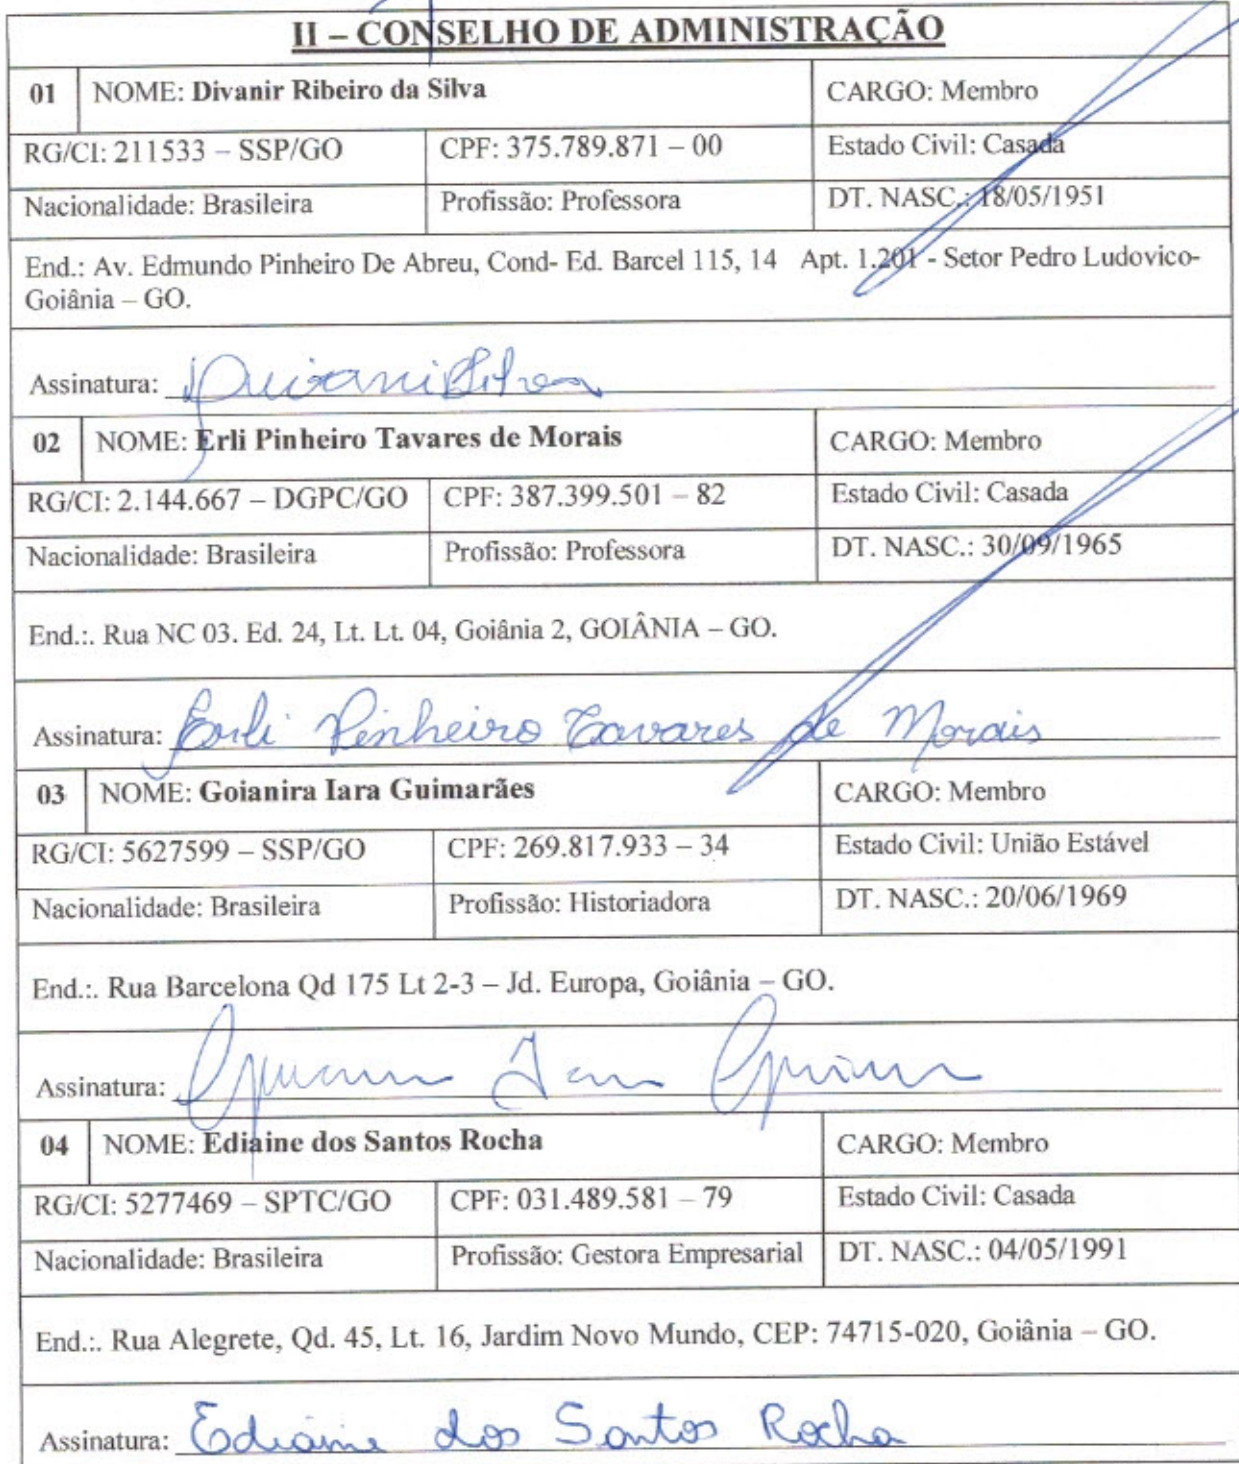 II – CONSELHO DE ADMINISTRAÇÃO
01 NOME: Divanir Ribeiro da Silva CARGO: Membro
RG/CI: 211533 – SSP/GO CPF: 375.789.871 – 00 Estado Civil: Casada
Nacionalidade: Brasileira Profissão: Professora DT. NASC.: 18/05/1951
End.: Av. Edmundo Pinheiro De Abreu, Cond- Ed. Barcel 115, 14 Apt. 1.201 - Setor Pedro Ludovico-
Goiânia – GO.
Assinatura:
02 NOME: Erli Pinheiro Tavares de Morais CARGO: Membro
RG/CI: 2.144.667 – DGPC/GO CPF: 387.399.501 – 82 Estado Civil: Casada
Nacionalidade: Brasileira Profissão: Professora DT. NASC.: 30/09/1965
End.:. Rua NC 03. Ed. 24, Lt. Lt. 04, Goiânia 2, GOIÂNIA – GO.
Assinatura: Erli Pinheiro Tavares de Morais
03 NOME: Goianira Iara Guimarães CARGO: Membro
RG/CI: 5627599 – SSP/GO CPF: 269.817.933 – 34 Estado Civil: União Estável
Nacionalidade: Brasileira Profissão: Historiadora DT. NASC.: 20/06/1969
End.:. Rua Barcelona Qd 175 Lt 2-3 – Jd. Europa, Goiânia – GO.
Assinatura:
04 NOME: Ediaine dos Santos Rocha CARGO: Membro
RG/CI: 5277469 – SPTC/GO CPF: 031.489.581 – 79 Estado Civil: Casada
Nacionalidade: Brasileira Profissão: Gestora Empresarial DT. NASC.: 04/05/1991
End.:. Rua Alegrete, Qd. 45, Lt. 16, Jardim Novo Mundo, CEP: 74715-020, Goiânia – GO.
Assinatura: Ediaine dos Santos Rocha